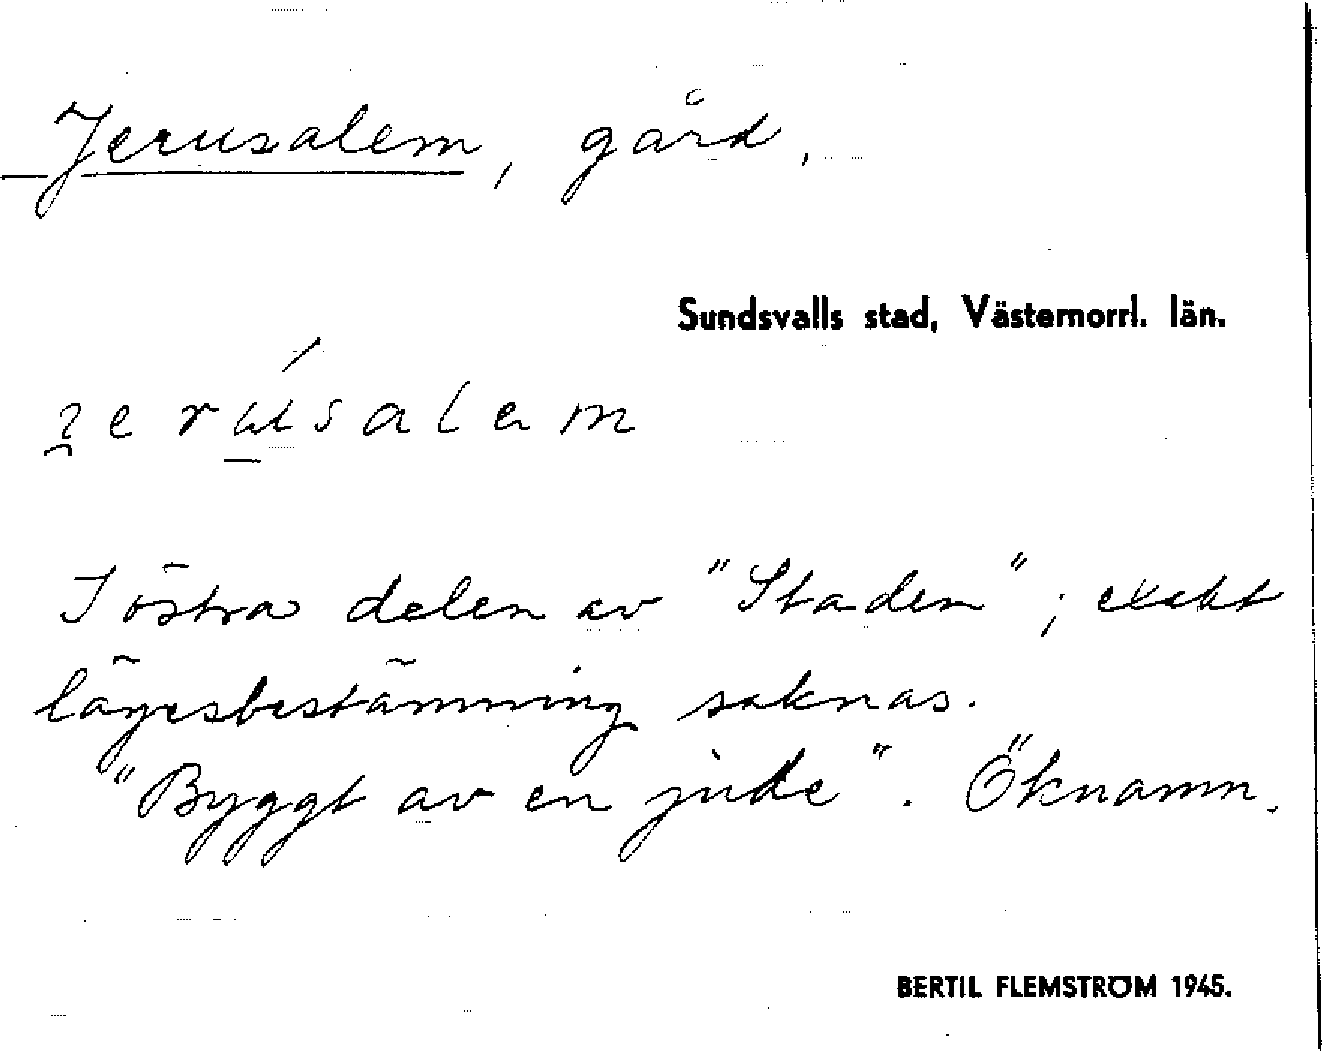 Jerusalem, gård.
Sundsvalls stad, Västernorrl. län.
I östra delen av "Staden"; exakt
lägesbestämning saknas.
"Byggt av en jude". Öknamn.
BERTIL FLEMSTRÖM 1945.